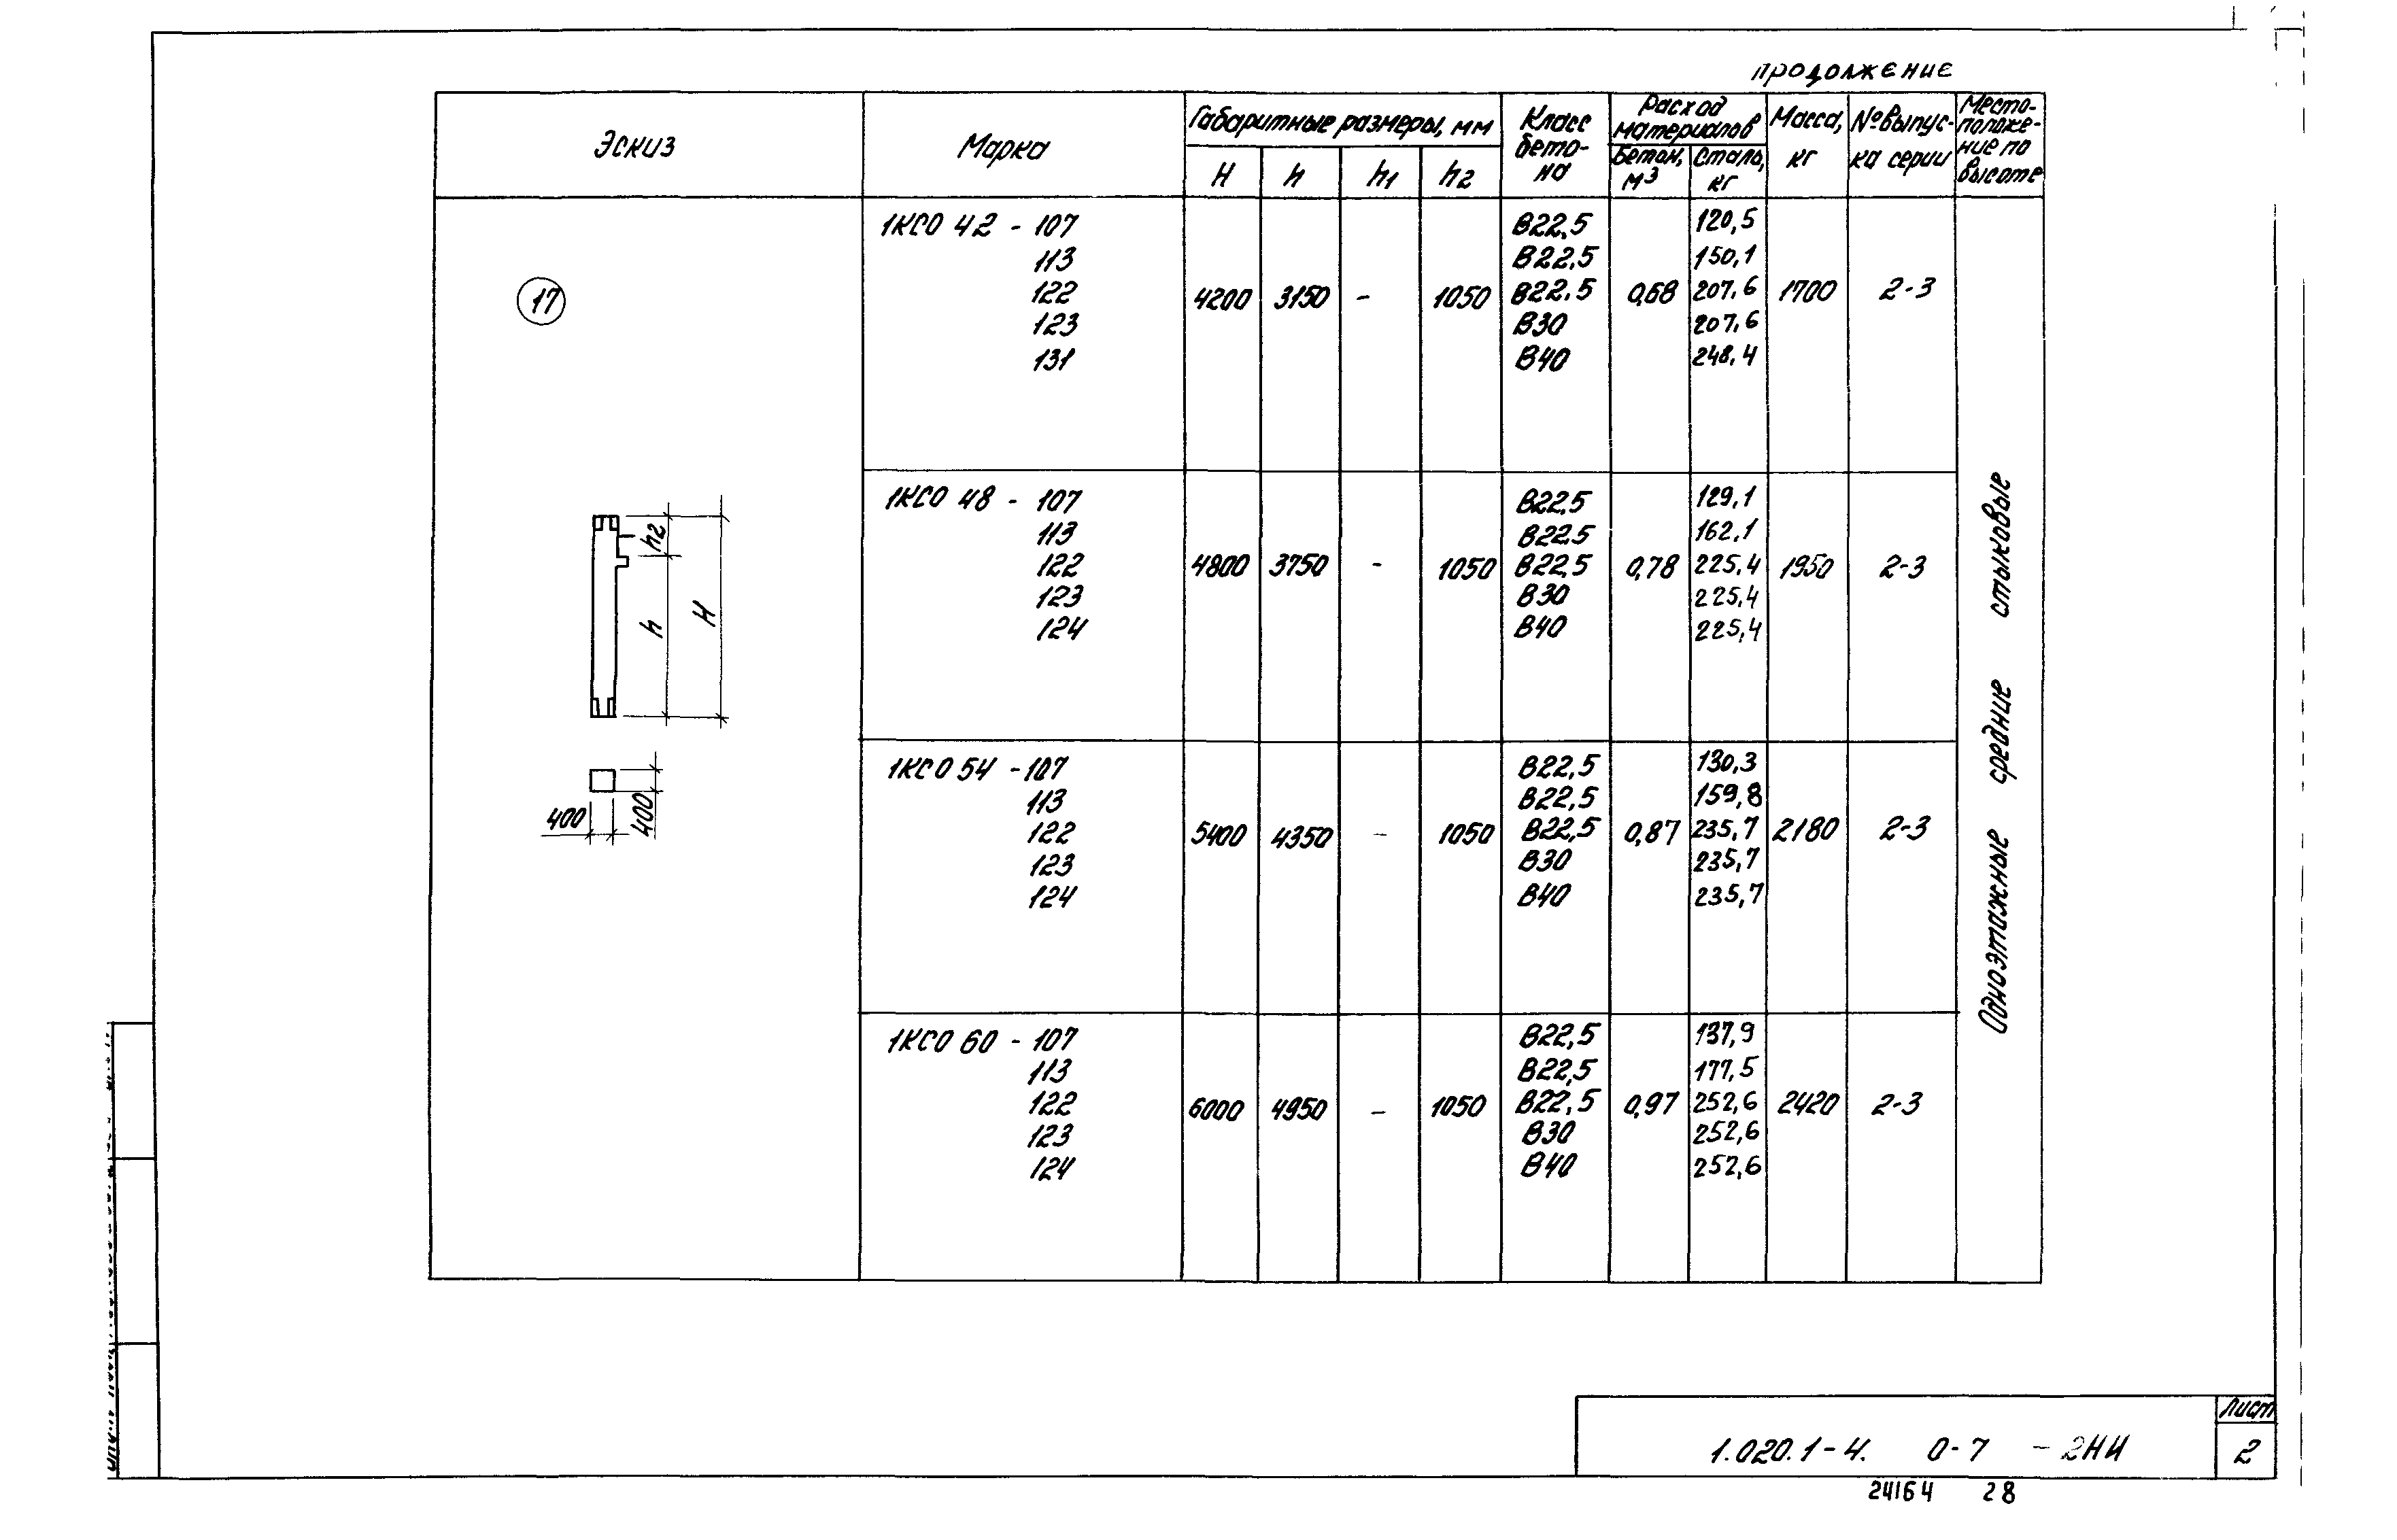 продолжение
Эскиз
Марка
Габаритные размеры, мм
H
h
h1
h2
Класс
бето-
на
Расход
материалов
Бетон,
м3
Сталь,
кг
Масса,
кг
№ выпус-
ка серии
Место-
положе-
ние по
высоте
17
h2
h
H
400
400
1КСО 42 - 107 В22,5 120,5
113 В22,5 150,1
122 4200 3150 - 1050 В22,5 0,68 207,6 1700 2-3
123 В30 207,6
131 В40 248,4
1КСО 48 - 107 В22,5 129,1
113 В22,5 162,1
122 4800 3750 - 1050 В22,5 0,78 225,4 1950 2-3
123 В30 225,4
124 В40 225,4
1КСО 54 - 107 В22,5 130,3
113 В22,5 159,8
122 5400 4350 - 1050 В22,5 0,87 235,7 2180 2-3
123 В30 235,7
124 В40 235,7
1КСО 60 - 107 В22,5 137,9
113 В22,5 177,5
122 6000 4950 - 1050 В22,5 0,97 252,6 2420 2-3
123 В30 252,6
124 В40 252,6
Одноэтажные средние стыковые
1.020.1-4. 0-7 - 2НИ
Лист
2
24164 28